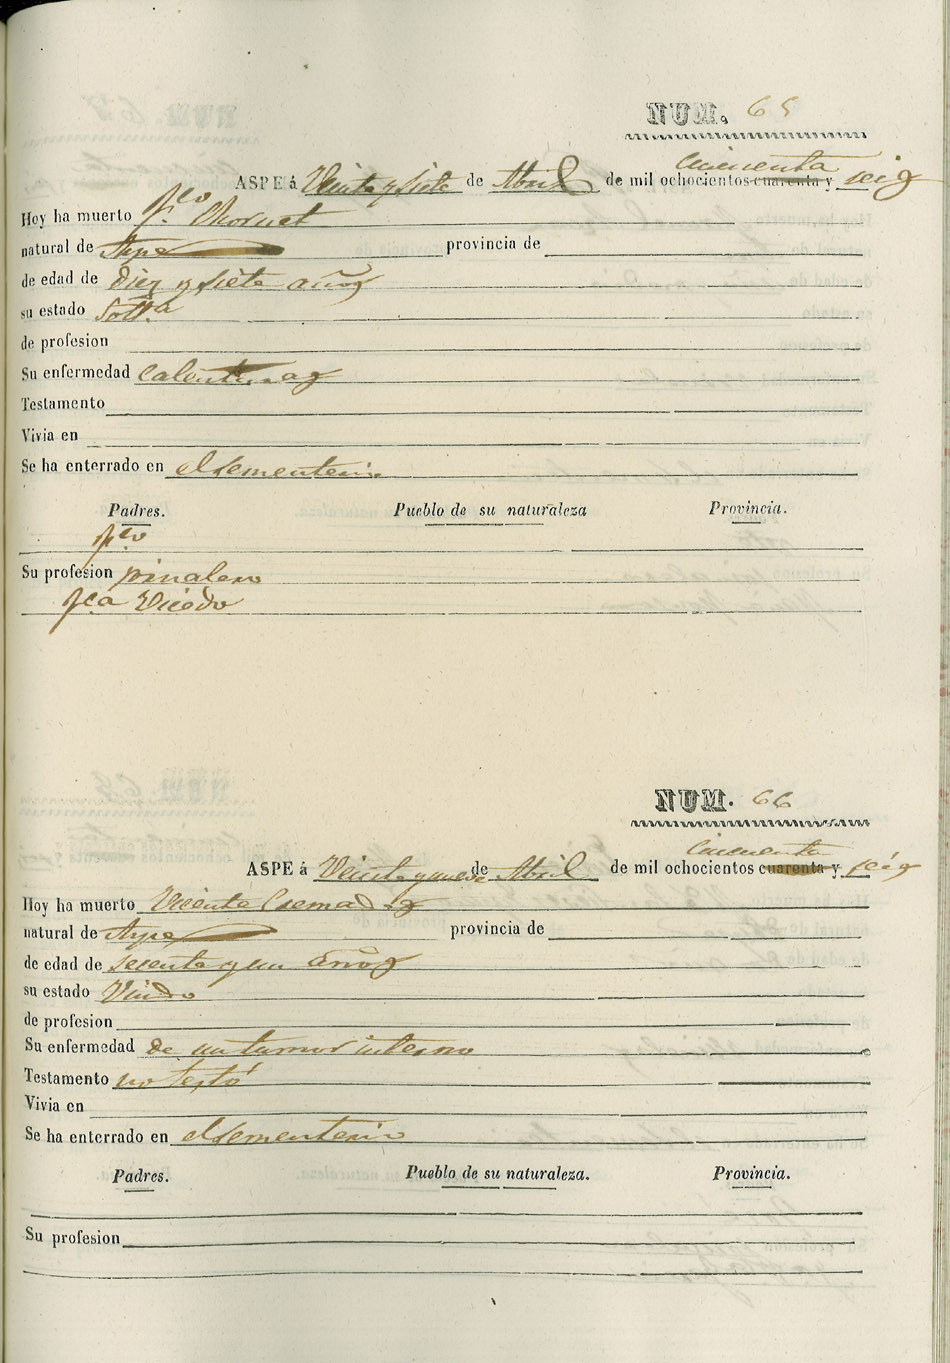 NUM. 65
cincuenta
ASPE á Veinte y siete de Abril de mil ochocientos cuarenta y seis
Hoy ha muerto fco Chornet
natural de Aspe provincia de
de edad de diez y siete años
su estado Solt.a
de profesion
Su enfermedad Calenturas
Testamento
Vivia en
Se ha enterrado en el sementerio
Padres. Pueblo de su naturaleza Provincia.
fco
Su profesion
fca
NUM. 66
Cincuenta
ASPE á de Abril de mil ochocientos cuarenta y seis
Hoy ha muerto Vicente
natural de Aspe provincia de
de edad de sesenta y un años
su estado Viudo
de profesion
Su enfermedad de un tumor interno
Testamento no testó
Vivia en
Se ha enterrado en el sementerio
Padres. Pueblo de su naturaleza. Provincia.
Su profesion